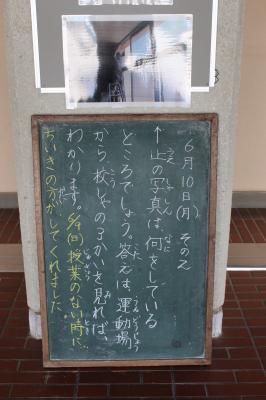 6月10日(月) その2
↑上の写真は、何をしている
ところでしょう。答えは、運動場
から、校しゃの3かいを見れば、
わかります。6/9(日)授業のない時に、
ちいきの方がしてくれました。